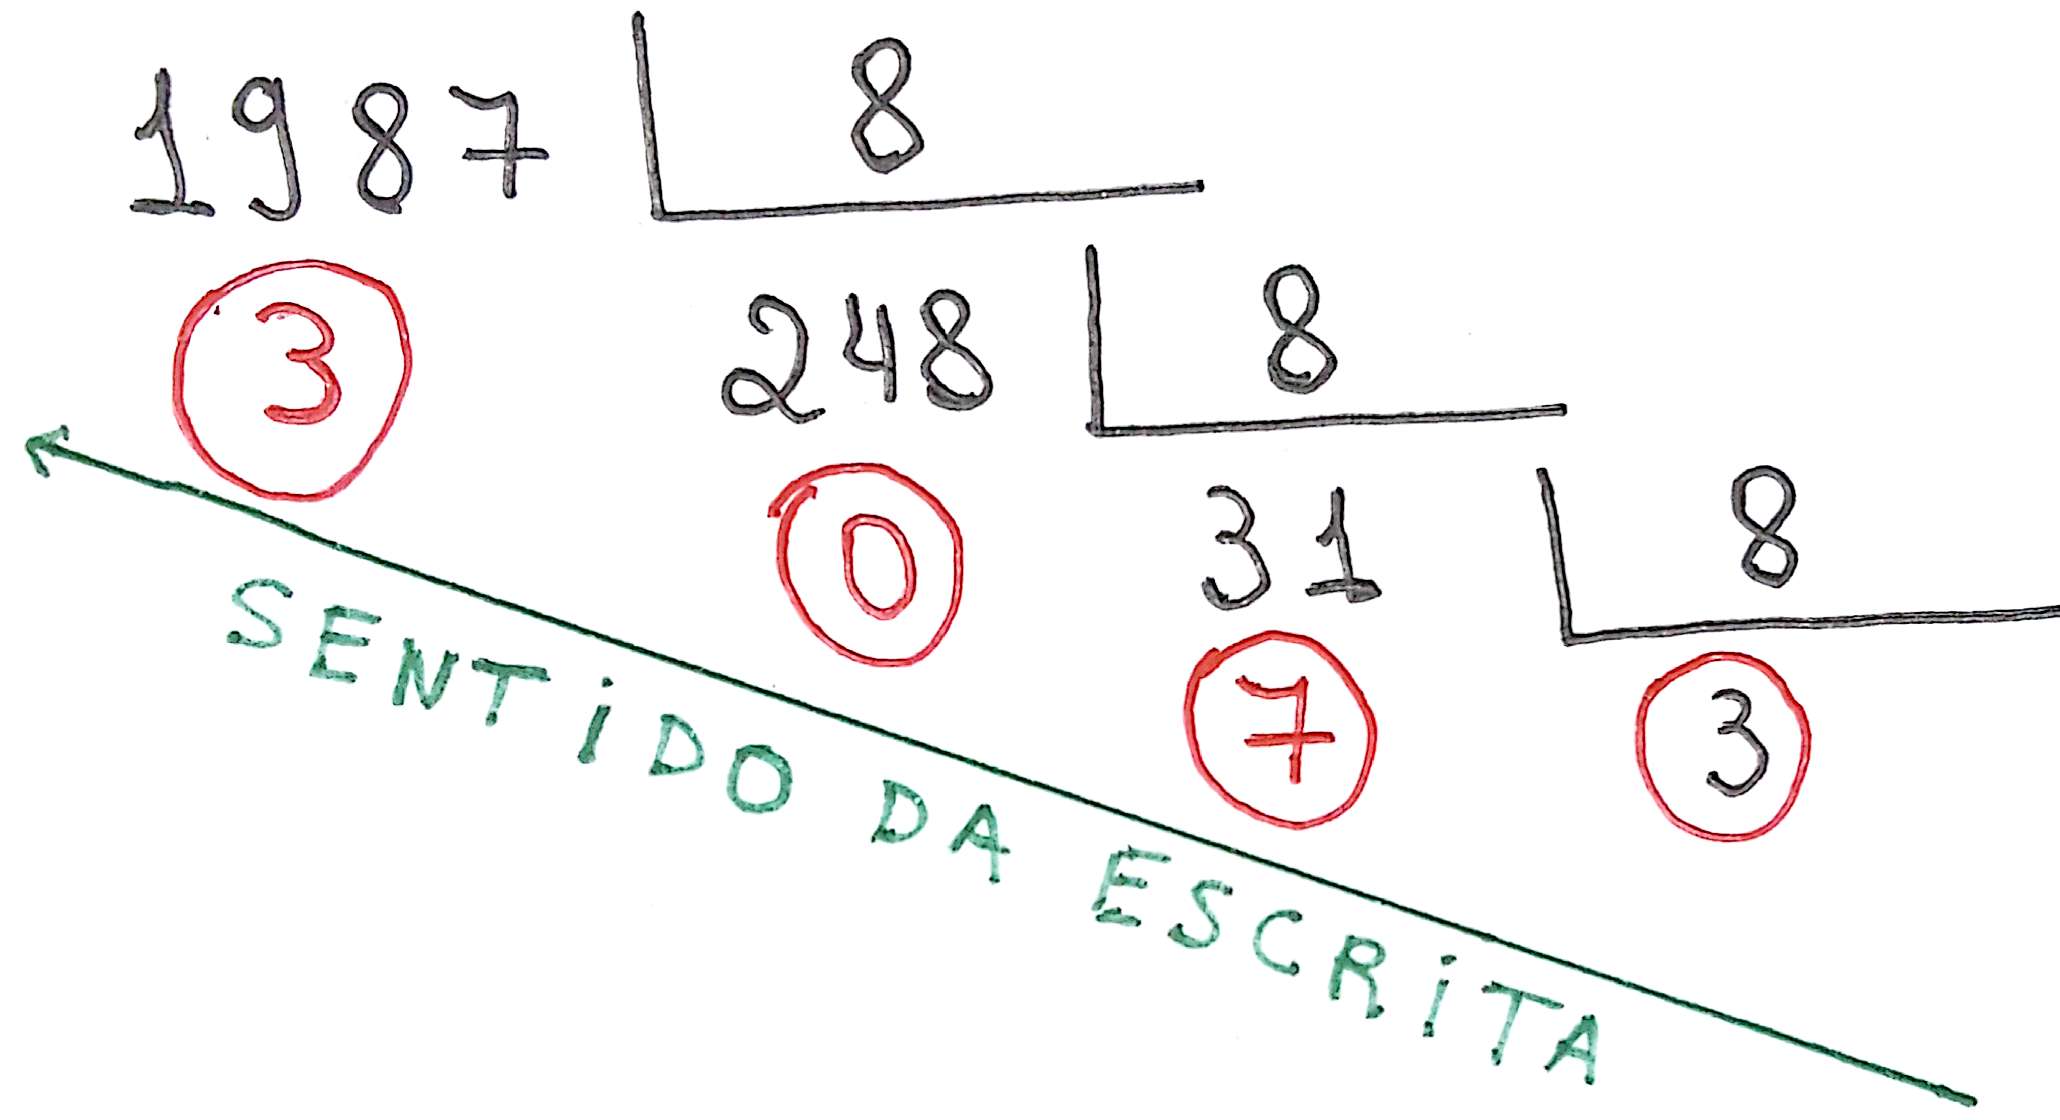 1987 8
3 248 8
0 31 8
7 3
SENTiDO DA ESCRiTA